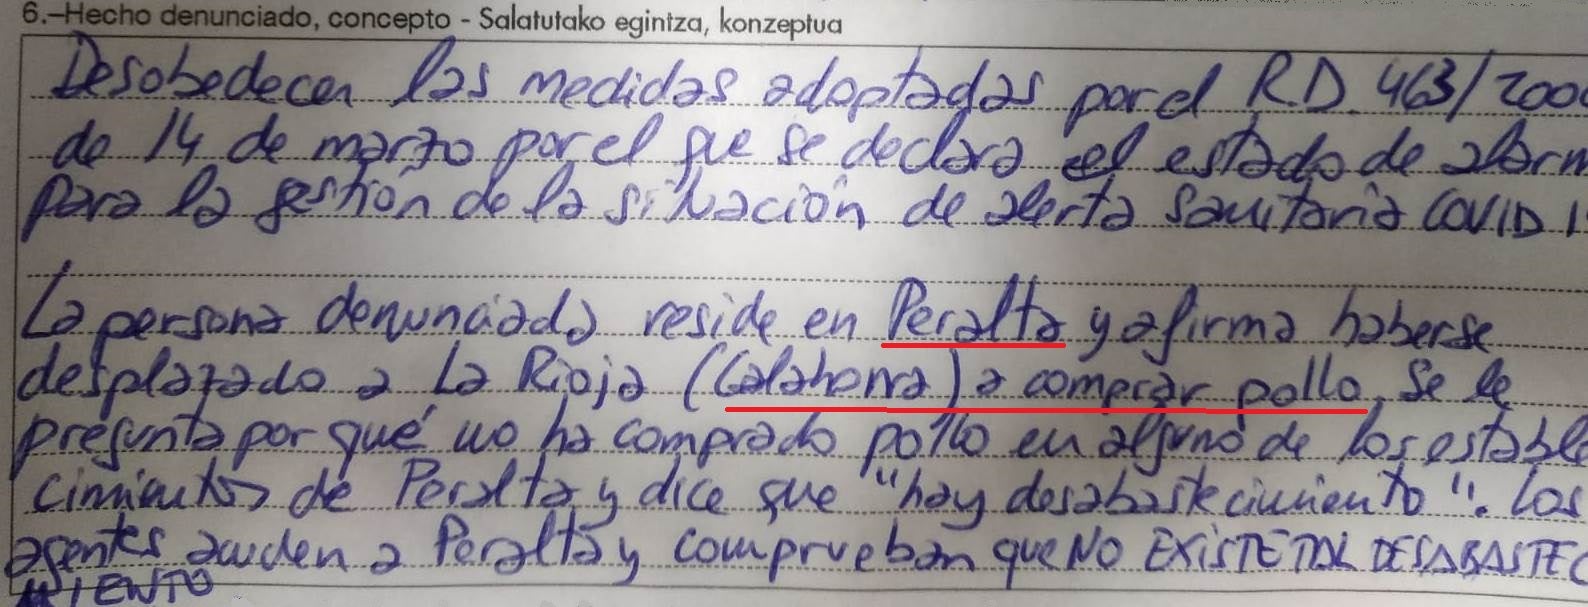 6.–Hecho denunciado, concepto - Salatutako egintza, konzeptua
Desobedecer las medidas adoptadas por el R.D. 463/200
de 14 de marzo por el que se declara el estado de alarm
para la gestión de la situación de alerta sanitaria COVID 1
La persona denunciada reside en Peralta y afirma haberse
desplazado a La Rioja (Calahorra) a comprar pollo. Se le
pregunta por qué no ha comprado pollo en alguno de los estable
cimientos de Peralta y dice que "hay desabastecimiento". Los
agentes acuden a Peralta y comprueban que NO EXISTE TAL DESABASTEC
IMIENTO